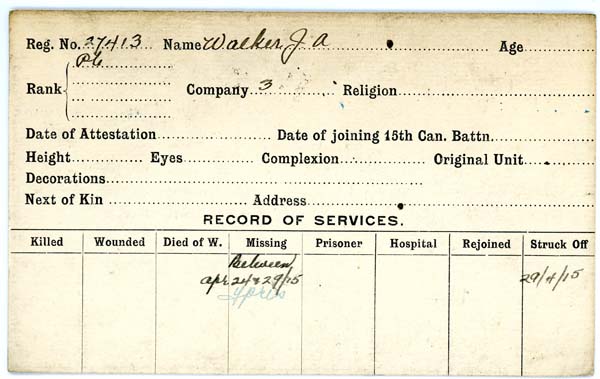 Reg. No. 27413 Name Walker, J A Age
Pte
Rank Company 3 Religion
Date of Attestation Date of joining 15th Can. Battn.
Height Eyes Complexion Original Unit
Decorations
Next of Kin Address
RECORD OF SERVICES.
Killed Wounded Died of W. Missing Prisoner Hospital Rejoined Struck Off
Between
apr 24 & 29/15 29/4/15
Ypres